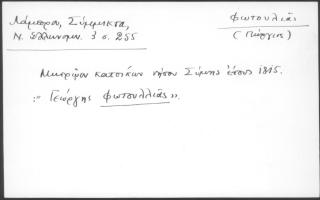 Λάμπρου, Σύμμικτα,
Ν. Ελληνομν. 3 σ. 255
Φωτουλιᾶς
(Γεώργιος)
κατοίκων νήσου Σύμης ἔτους 1815.
:" Γεώργης Φωτουλλιᾶς ".